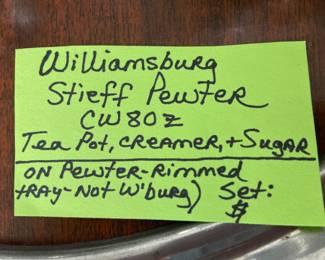 Williamsburg
Stieff Pewter
CW80z
Tea Pot, Creamer, + Sugar
on Pewter-Rimmed
tray-Not W'burg) Set:
$